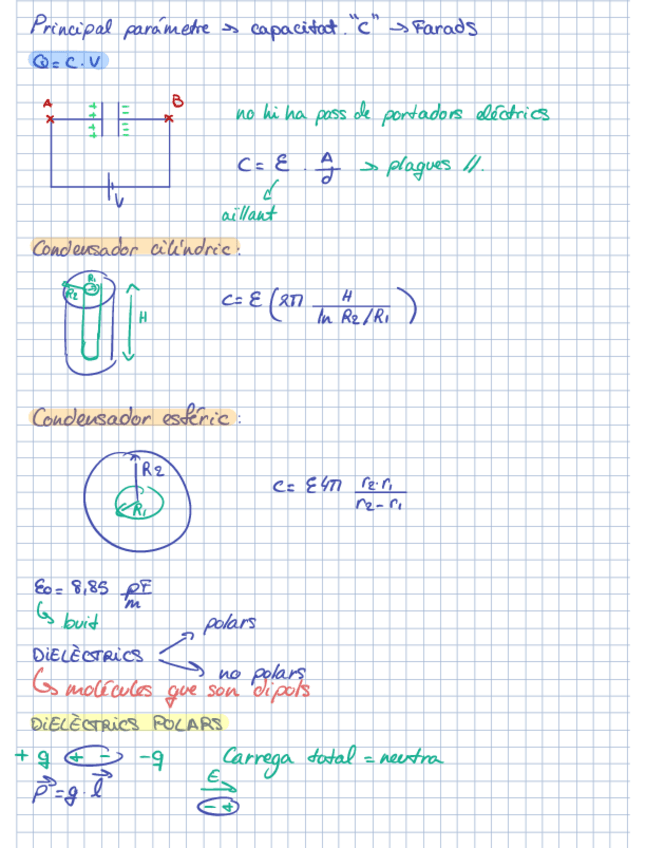 Principal parámetre → capacitat. "C" → Farads
Q = C · V
A B
+ + + + − − − −
no hi ha pass de portadors elèctrics
C = ε · A/d → plaques //.
aïllant
V
Condensador cilíndric:
R1
R2
H
C = ε (2π H / ln R2/R1)
Condensador esfèric:
R2
R1
C = ε4π r2·r1 / r2 − r1
ε0 = 8,85 pF/m
↳ buit
polars
DiELÈCTRiCS
no polars
↳ molécules que son dipols
DiELÈCTRiCS POLARS
+ q + − − q Carrega total = neutra
p = q · l E
− +